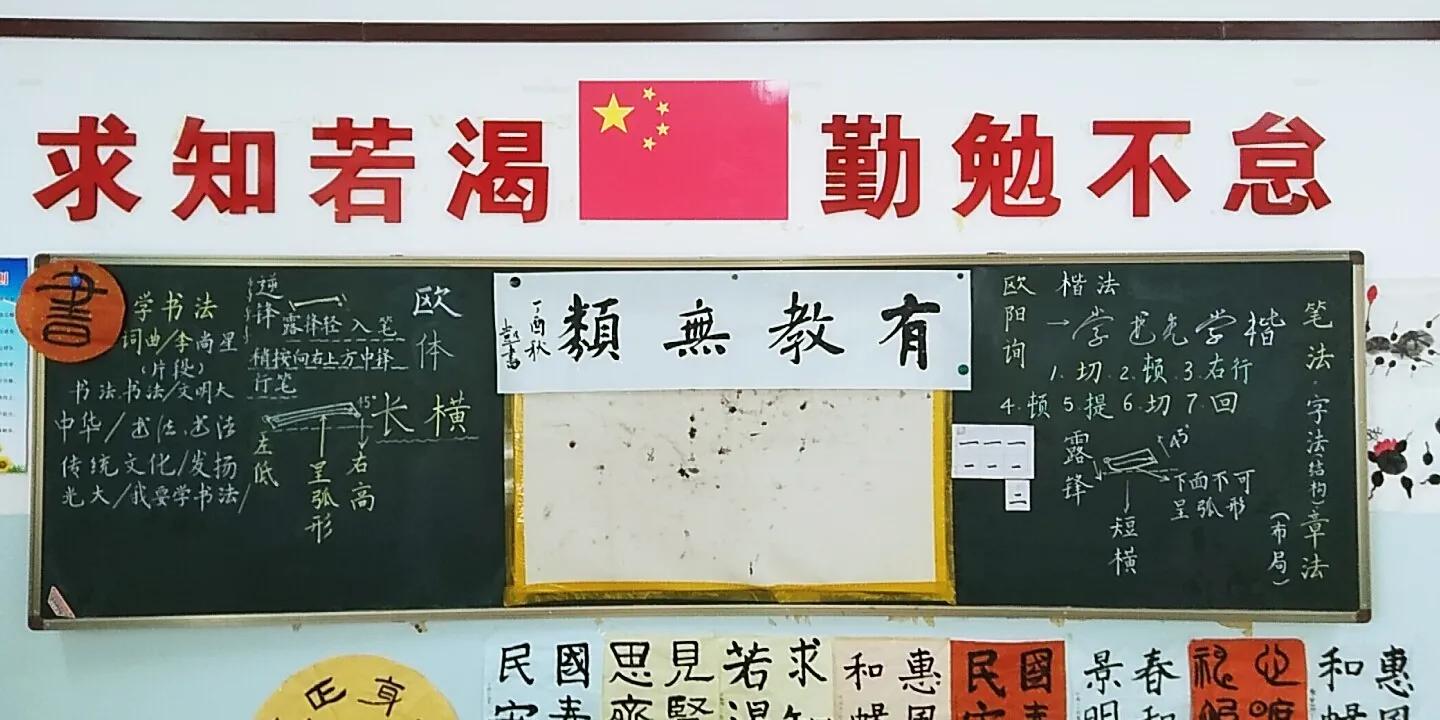 求知若渴 勤勉不怠
書
学书法
词曲/李尚星
(片段)
书法书法/文明大
中华/书法.书法
传统文化/发扬
光大/我要学书法/
逆锋
露锋轻入笔
稍按向右上方中锋
行笔
欧体
长横
45°
左低
呈弧形
右高
有教無類
丁酉秋
欧阳询
楷法
→学书先学楷
1.切.2.顿.3.右行
4.顿5.提6.切7.回
露锋
45°
下面不可
呈弧形
短横
笔法.字法(结构)章法
(布局)
一一一
二
國
民
見賢
思齊
求知
若渴
惠風
和暢
國
民
春和
景明
惠風
和暢